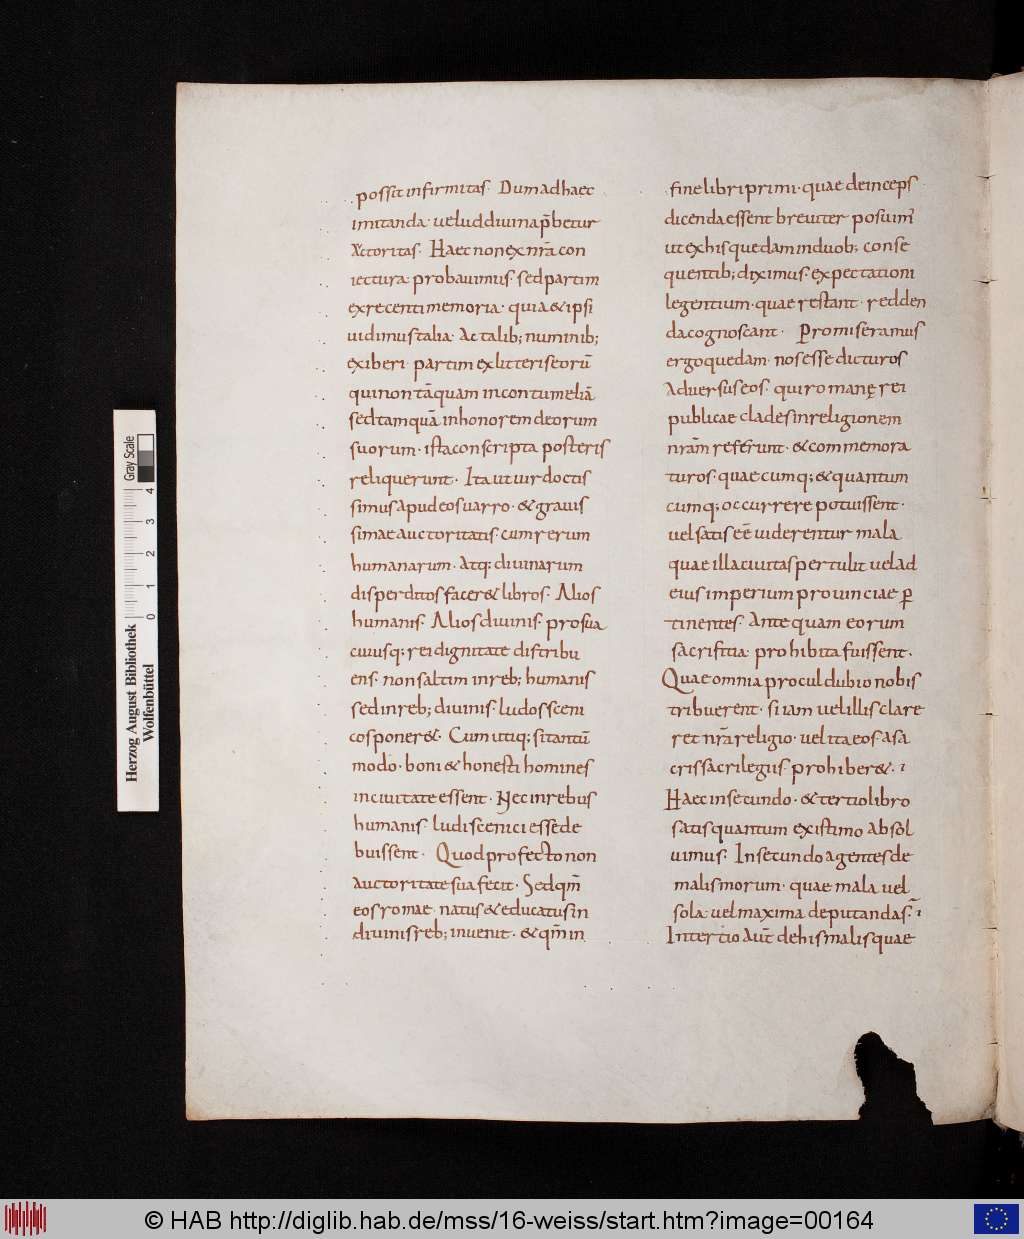 possit infirmitas· Dum ad haec
imitanda· uelud diuina p̄betur
Auctoritas· Haec non ex nr̄a con
iectura· probauimus· sed partim
ex recenti memoria· quia & ipsi
uidimus talia· Ac talib; numinib;
exiberi· partim ex litteris eorū
qui non tāquam in contumeliā
sed tamquā in honorem deorum
suorum· ista conscripta posteris
reliquerunt· Ita ut uir doctis
simus apud eos uarro· & grauis
simae auctoritatis· cum rerum
humanarum· Atq; diuinarum
disperditos facer& libros· Alios
humanis· Alios diuinis· pro sua
cuiusq; rei dignitate distribu
ens· non saltim in reb; humanis
sed in reb; diuinis· ludos sceni
cos poner&· Cum utiq; si tantū
modo· boni & honesti homines
in ciuitate essent· Nec in rebus
humanis· ludi scenici esse de
buissent· Quod profecto non
auctoritate sua fecit· Sed qm̄
eos romae· natus & educatus in
diuinis reb; inuenit· & qm̄ in
fine libri primi· quae deinceps
dicenda essent breuiter posuim'
ut ex his quedam in duob; conse
quentib; diximus· expectationi
legentium· quae restant· redden
da cognoscant· Promiseramus
ergo quedam· nos esse dicturos
Aduersus eos· qui romanę rei
publicae clades in religionem
nr̄am referunt· & commemora
turos· quaecumq; & quantum
cumq; occurrere potuissent·
uel satis eē uiderentur mala
quae illa ciuitas pertulit uel ad
eius imperium prouinciae p̱
tinentes· Ante quam eorum
sacrificia· prohibita fuissent·
Quae omnia procul dubio nobis
tribuerent· si iam uel illis clare
ret nr̄a religio· uel ita eos a sa
cris sacrilegiis· prohiber&·
Haec in secundo· & tertio libro
satis quantum existimo absol
uimus· In secundo agentes de
malis morum· quae mala uel
sola· uel maxima deputanda s̄·
In tertio aut̄ de his malis quae
Herzog August Bibliothek
Wolfenbüttel
0 1 2 3 4
Gray Scale
© HAB http://diglib.hab.de/mss/16-weiss/start.htm?image=00164